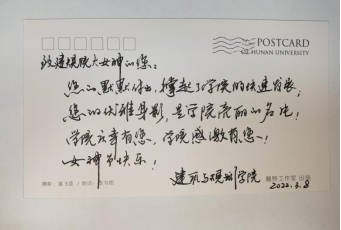 POSTCARD
OF HUNAN UNIVERSITY
致建规院大女神的您：
您的默默付出，撑起了学院的快速发展，
您的优雅身影，是学院亮丽的名片！
学院庆幸有您，学院感激有您！
女神节快乐！
建筑与规划学院
2022.3.8